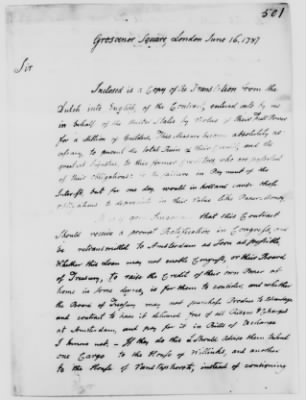 501
Grosvenor Square, London June 16, 1787
Sir
Inclosed is a Copy of the Translation from the
Dutch into English, of the Contract, entered into by me
in behalf of the United States by Virtue of their Full Power
for a Million of Guilders. This Measure became absolutely
to prevent the total Ruin of their Credit, and the
greatest Injustice, to their former Creditors who are possessed
of their Obligations: for the failure in Payment of the
Interest, but for one day, would in Holland cause those
Obligations to depreciate in their Value like Paper Money
that this Contract
should receive a prompt Ratification in Congress, and
be retransmitted to Amsterdam as soon as possible.
Whether this Loan may not enable Congress, or their Board
of Treasury, to raise the Credit of their own Paper at
home in some degree, is for them to consider, and whether
the Board of Treasury may not purchase Produce to Advantage
and contract to have it delivered free of all Risques & Charges
at Amsterdam, and pay for it in Bills of Exchange
I know not. — If they do this I should advise them to send
one Cargo to the House of Willinks, and another
to the House of Vanstaphorsts, instead of consigning